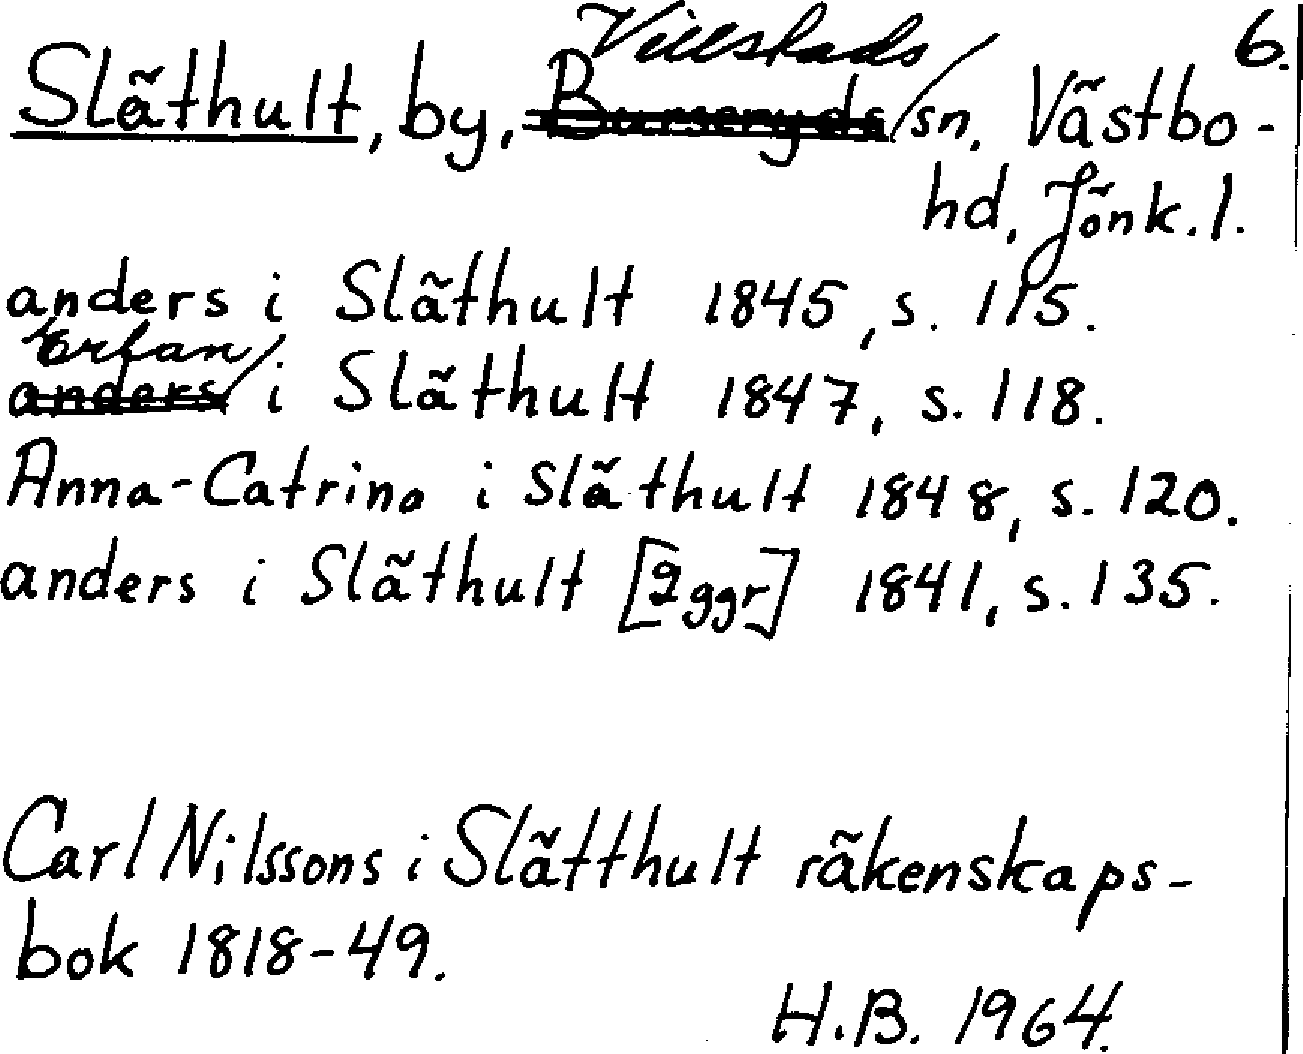 6.
Släthult, by, Villstads sn. Västbo-
hd, Jönk. l.
anders i Släthult 1845, s. 115.
Erfan i Släthult 1847, s. 118.
Anna-Catrina i Släthult 1848, s. 120.
anders i Släthult [2 ggr] 1841, s. 135.
Carl Nilssons i Slätthult räkenskaps-
bok 1818-49.
H.B. 1964.